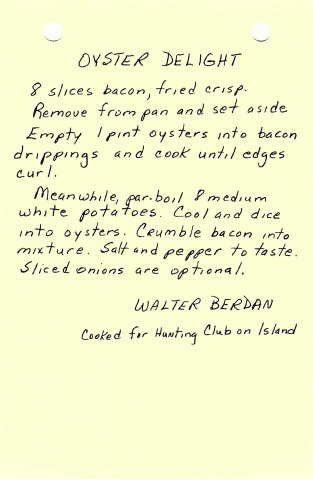 OYSTER DELIGHT
8 slices bacon, fried crisp.
Remove from pan and set aside
Empty 1 pint oysters into bacon
drippings and cook until edges
curl.
Meanwhile, par-boil 8 medium
white potatoes. Cool and dice
into oysters. Crumble bacon into
mixture. Salt and pepper to taste.
Sliced onions are optional.
WALTER BERDAN
Cooked for Hunting Club on Island